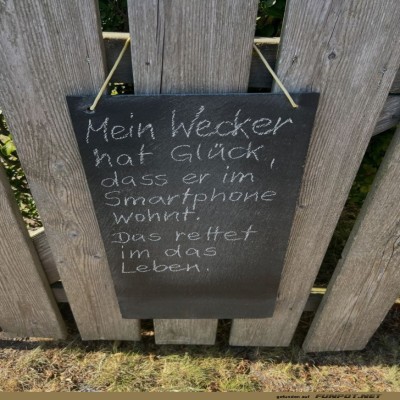 Mein Wecker
hat Glück,
dass er im
Smartphone
wohnt.
Das rettet
im das
Leben.
gefunden auf FUNPOT.NET